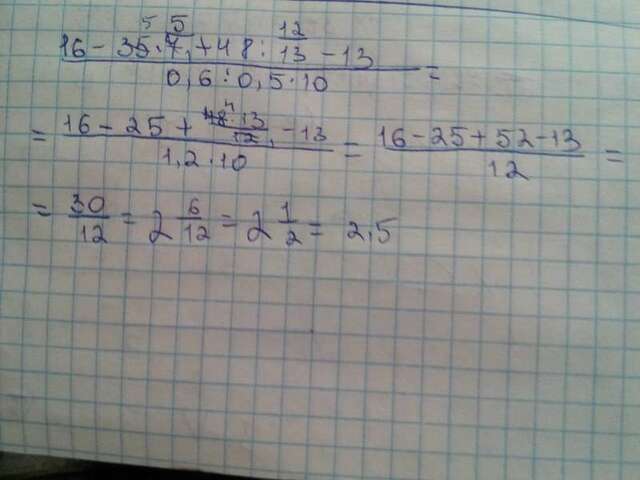 5 5 12
16 - 35 · 7, + 48 : 13 - 13
0,6 : 0,5 · 10 =
4
= 16 - 25 + 48 · 13 / 12, - 13 / 1,2 · 10 = 16 - 25 + 52 - 13 / 12 =
= 30/12 = 2 6/12 = 2 1/2 = 2,5